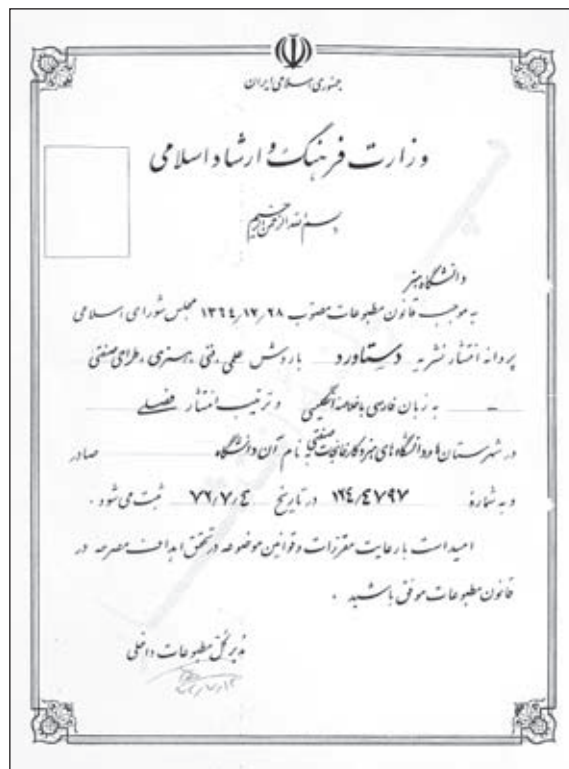 جمهوری اسلامی ایران
وزارت فرهنگ و ارشاد اسلامی
بسم الله الرحمن الرحیم
دانشگاه هنر
به موجب قانون مطبوعات مصوب ۱۳٦٤٫۱۲٫۲۸ مجلس شورای اسلامی
پروانه انتشار نشریه دستاورد با روش علمی، فنی، هنری، طراحی صنعتی
ــ به زبان فارسی با خلاصه انگلیسی و ترتیب انتشار فصلی
در شهرستان‌ها و دانشگاه‌های هنر و کارخانجات صنعتی بنام آن دانشگاه صادر
و به شمارهٔ ۱۲٤٫٤۷۹۷ در تاریخ ۷٦٫۷٫٤ ثبت می‌شود.
امید است با رعایت مقررات و قوانین موضوعه در تحقق اهداف مصرحه در
قانون مطبوعات موفق باشید.
مدیر کل مطبوعات داخلی